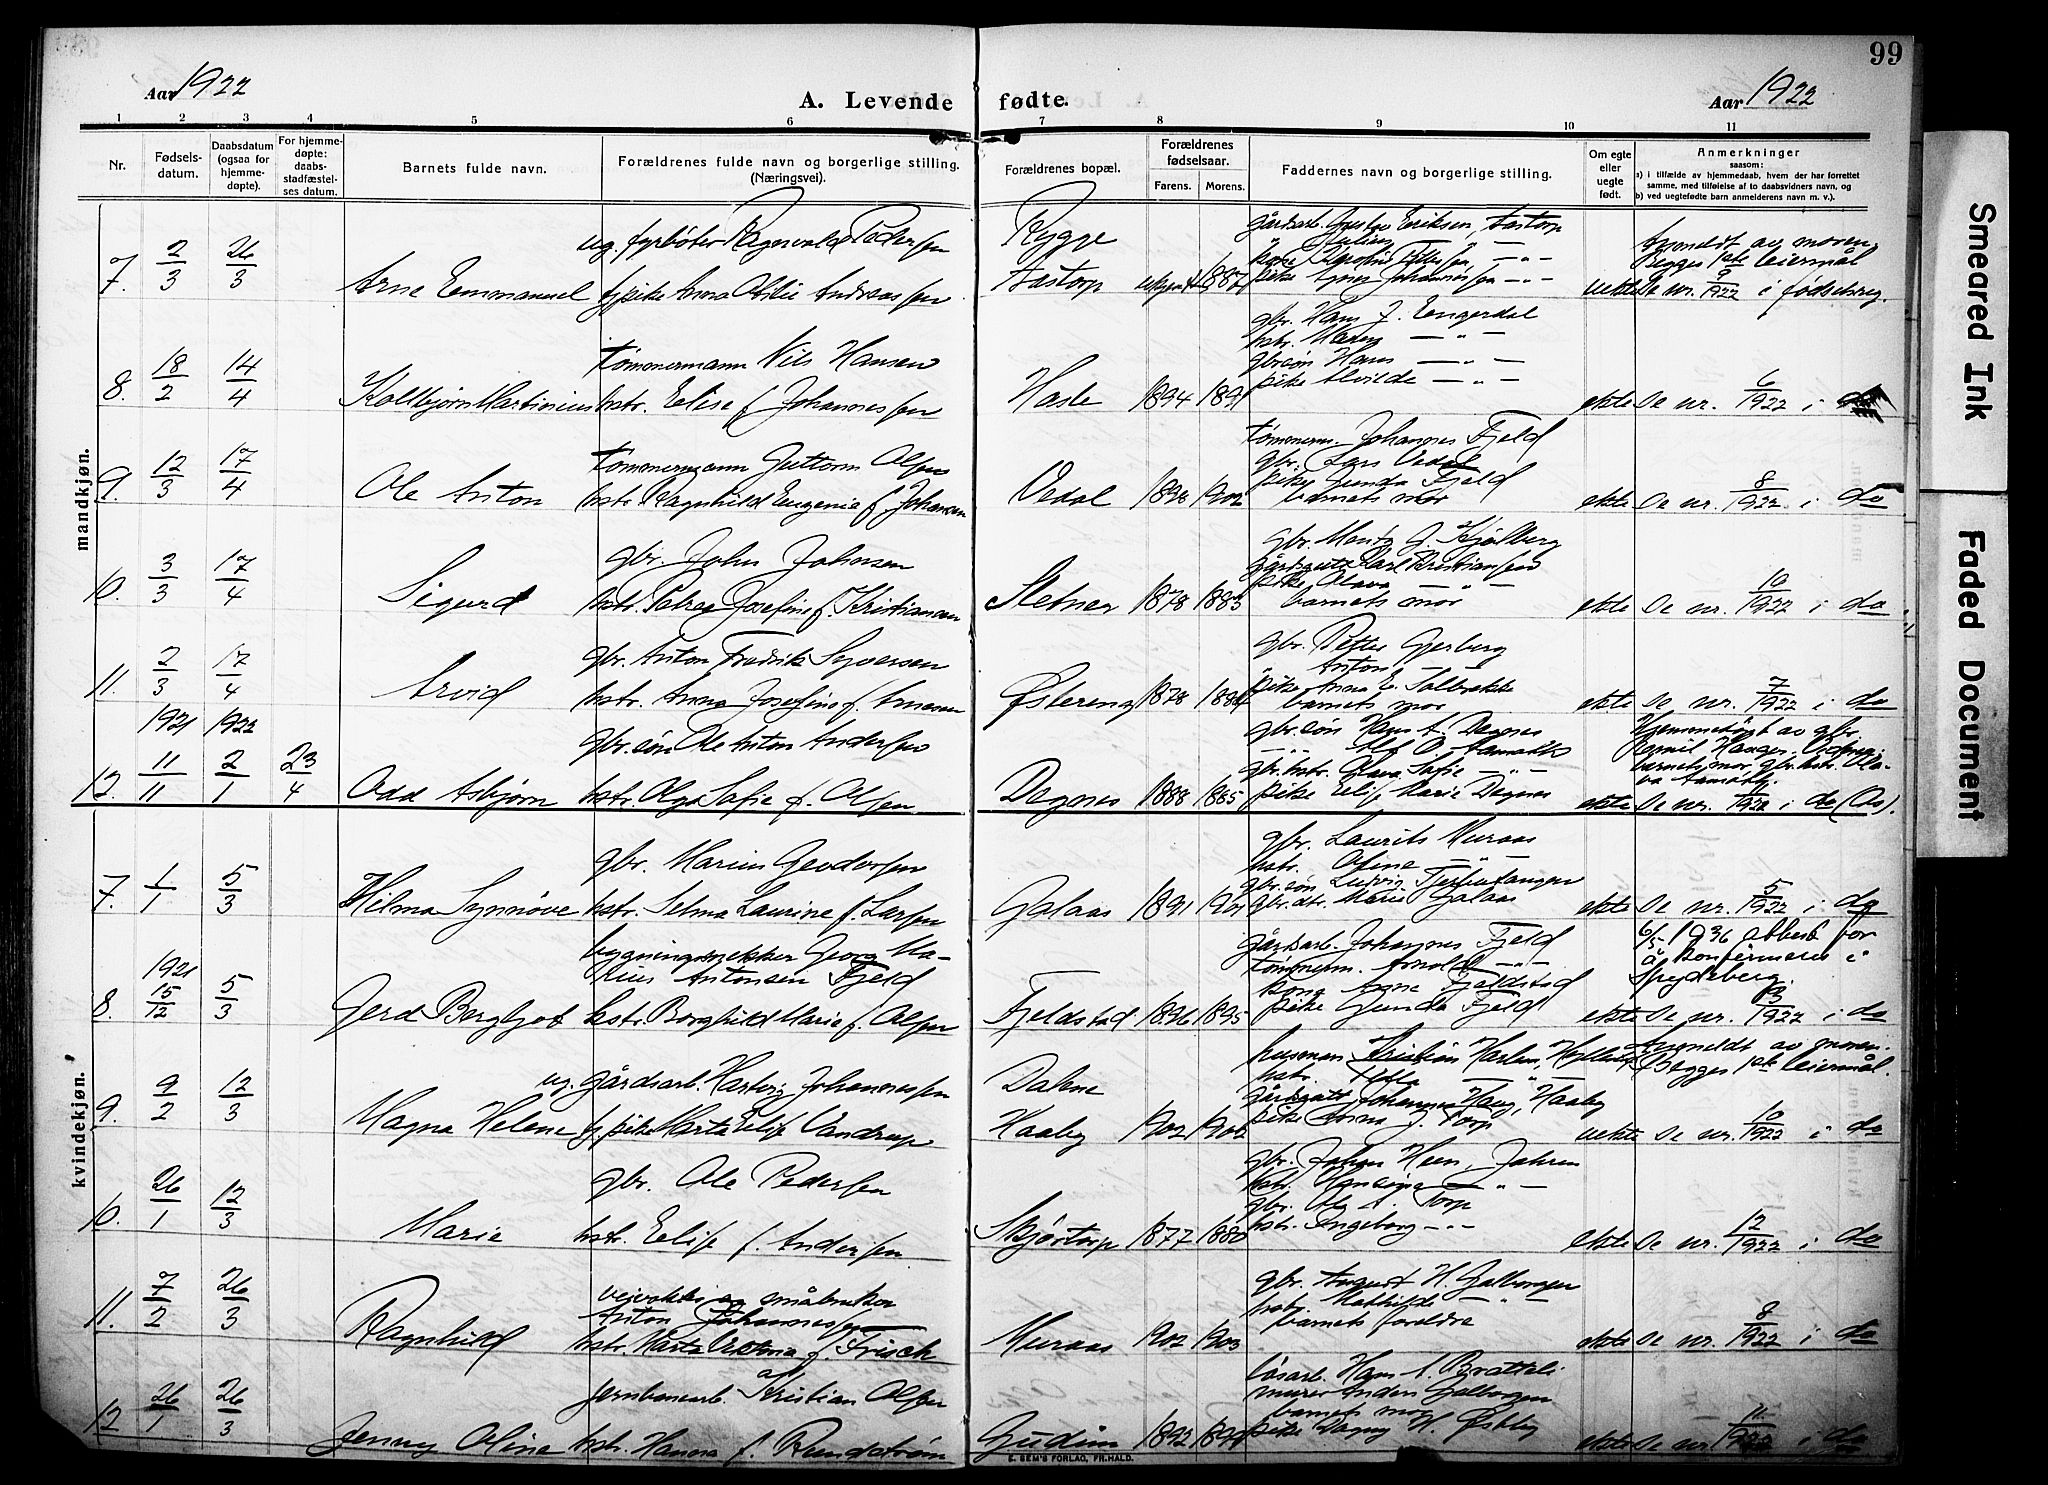 99
Aar 1922
A. Levende fødte.
Aar 1922
1 2 3 4 5 6 7 8 9 10 11
Nr.
Fødsels-
datum.
Daabsdatum
(ogsaa for
hjemme-
døpte).
For hjemme-
døpte:
daabs-
stadfæstel-
ses datum.
Barnets fulde navn.
Forældrenes fulde navn og borgerlige stilling.
(Næringsvei).
Forældrenes bopæl.
Forældrenes
fødselsaar.
Farens. Morens.
Faddernes navn og borgerlige stilling.
Om egte
eller
uegte
født.
Anmerkninger
saasom:
a) i tilfælde av hjemmedaab, hvem der har forrettet
samme, med tilføielse af to daabsvidners navn, og
b) ved uegtefødte barn anmelderens navn m. v.).
mandkjøn.
7. 2/3 26/3 Arne Emmanuel
ug. fyrbøter Ragnvald Pedersen
pike Anna Otilie Andreassen
Rygge
Aastorp
gårdarb. Gustav Eriksen, Aastorp
Anmeldt av moren.
Begges 1ste leiermål
uekte Se nr. 9/1922 i fødselsreg.
8. 18/2 14/4 Kolbjørn Martinius
tømmermann Nils Hansen
hstr. Elise f. Johannessen
Hasle 1894 1891
gbr. Hans J. Engerdal
hstr. Maren — " —
gbr.søn Hans — " —
pike Alvilde — " —
ekte Se nr. 6/1922 i do
9. 12/3 17/4 Ole Anton
tømmermann Guttorm Olsen
hstr. Ragnhild Eugenie f. Johansen
Vedal 1898 1902
tømmerm. Johannes Fjeld
gbr. Lars Vedal
pike Gunda Fjeld
barnets mor
ekte Se nr. 8/1922 i do
10. 3/3 17/4 Sigurd
gbr. John Johansen
hstr. Petrea Josefine f. Kristiansen
Sletner 1878 1883
gbr. Moritz G. Kjølberg
gårdgutt Karl Kristiansen
pike Olava — " —
barnets mor
ekte Se nr. 10/1922 i do
11. 2/3 17/4 Arvid
gbr. Anton Fredrik Syversen
hstr. Anna Josefine f. Arnesen
Østereng 1878
gbr. Petter Gjerberg
Anton — " —
pike Anna E. Solbrekke
barnets mor
ekte Se nr. 7/1922 i do
1921 1922
12. 11/11 2/1 23/4 Odd Asbjørn
gbr.søn Ole Anton Andersen
hstr. Olga Sofie f. Olsen
Degnes 1888 1885
gbr.søn Hans A. Degnes
— " — Alf O. Aamodt
gbr.hstr. Olava Sofie — " —
pike Elise Marie Degnes
Hjemmedøpt av gbr.
barnets mor, gbr.hstr. Ola-
va Aamodt.
ekte Se nr. 1/1922 i do (Ås).
kvindekjøn.
7. 1/1 5/3 Hilma Synnøve
gbr. Marius Teodorsen
hstr. Selma Laurine f. Larsen
Gslaas 1891 1901
gbr. Laurits Muraas
hstr. Oline — " —
gbr.søn Ludvig
gbr.dtr. Marie
ekte Se nr. 5/1922 i do
1921
8. 15/12 5/3 Gerd Bergljot
bygningssnekker Georg Ma-
rius Antonsen Fjeld
hstr. Borghild Marie f. Olsen
Fjeldstad 1896 1895
gårdarb. Johannes Fjeld
tømmerm. Arnold — " —
kone Anne Fjeldstad
pike Gunda Fjeld
6/5 1936 attest for
å konfirmeres i
Spydeberg.
ekte Se nr. 13/1922 i do
9. 9/2 12/3 Magna Helene
ug. gårdsarb. Hartvig Johannessen
pike Marta Elise Vandrup
Dalene
Haaby 1902 1902
husmann Kristian Karlsen,
hstr.
gårdgutt Johannes Haug, Haaby
pike Anna J. Torp
Anmeldt av moren.
Begges 1ste leiermål.
uekte Se nr. 10/1922 i do
10. 26/1 12/3 Marie
gbr. Ole Pedersen
hstr. Elise f. Andersen
Skjørtorp 1877 1880
gbr. Johan Heen, Jahren
hstr. Hansine — " —
gbr. Ole A. Torp
hstr. Ingeborg — " —
ekte Se nr. 12/1922 i do
11. 7/2 26/3 Ragnhild
veivokter og småbruker
Anton Johannessen
hstr. Marta Viktoria f. Frisch
Muraas 1902 1903
gbr. August H. Galbergen
hstr. Mathilde — " —
barnets foreldre
ekte Se nr. 8/1922 i do
12. 26/1 26/3 Jenny Oline
jernbanearb. Kristian Olsen
hstr. Hanna f. Rundstrøm
Gudim 1892
løsarb. Hans A. Bratteli
murer Anders Galbergen
barnets mor
pike Dagny H. Østby
ekte Se nr. 11/1922 i do
E. SEM'S FORLAG, FR.HALD.
Smeared Ink
Faded Document